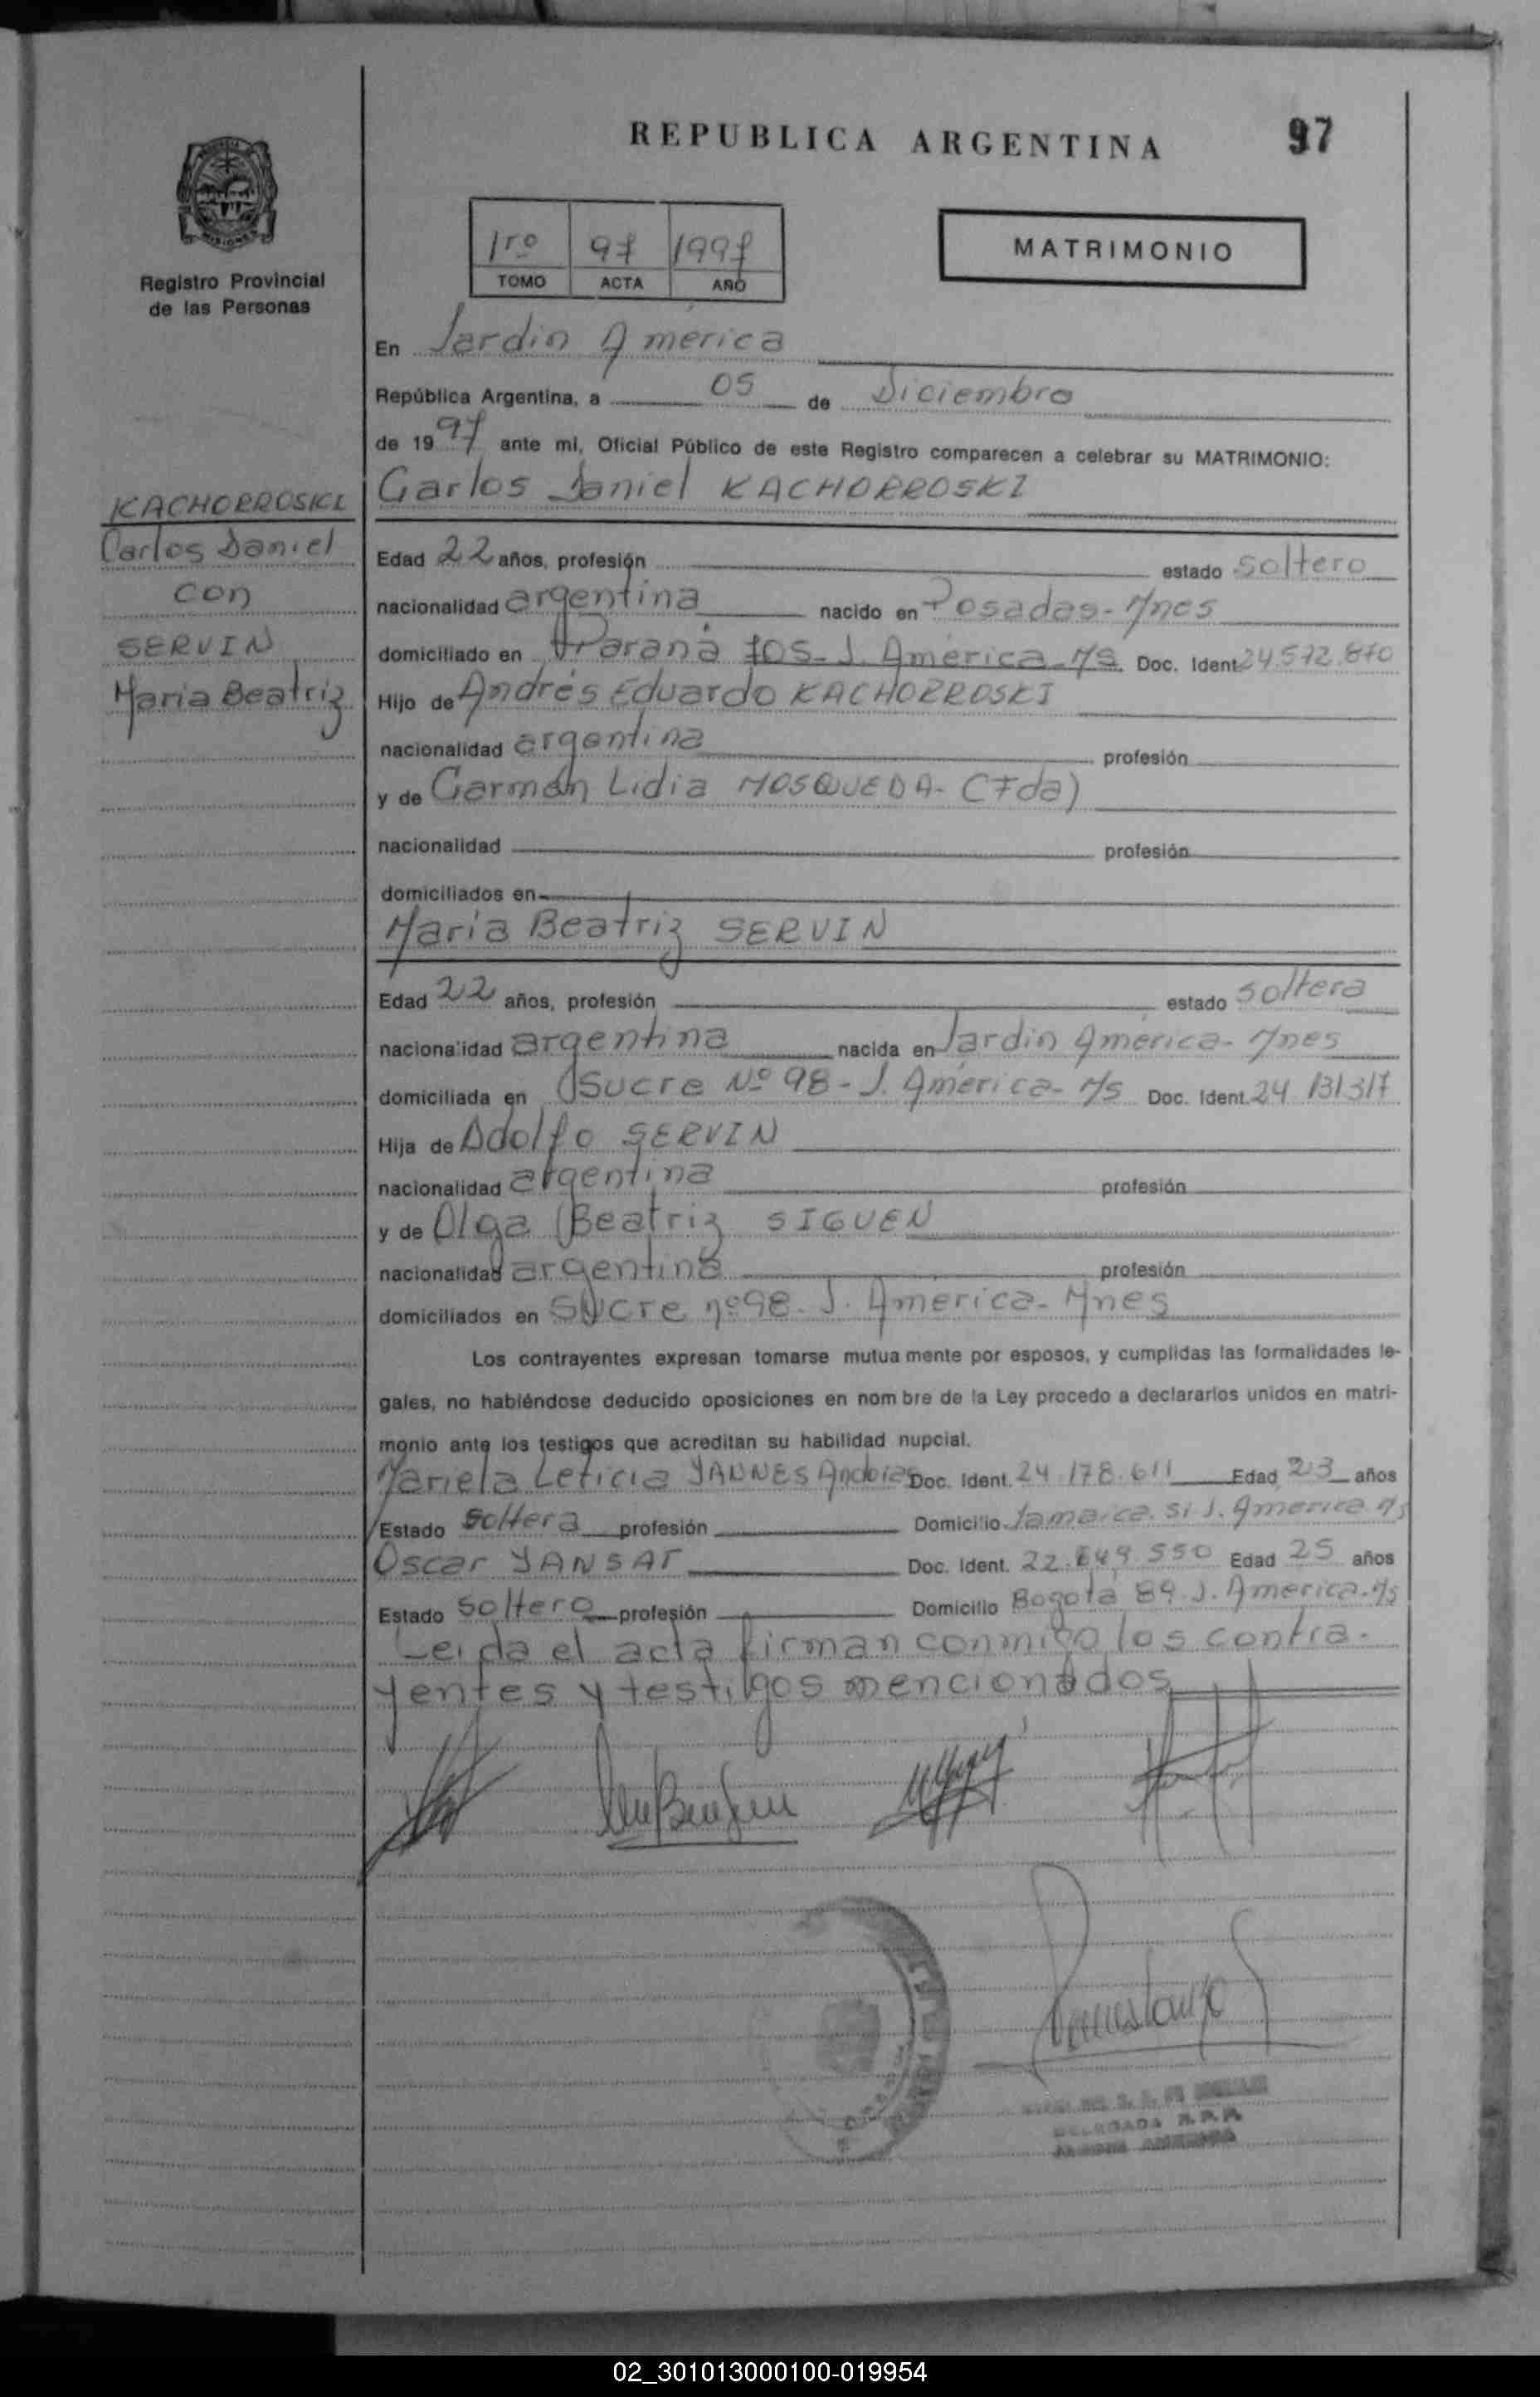 REPUBLICA ARGENTINA
97
MISIONES
Registro Provincial
de las Personas
1ro 97 1997
TOMO ACTA AÑO
MATRIMONIO
En Jardin América
República Argentina, a 05 de Diciembre
de 1997 ante mi, Oficial Público de este Registro comparecen a celebrar su MATRIMONIO:
Carlos Daniel KACHORROSKI
KACHORROSKI
Carlos Daniel
con
SERVIN
Maria Beatriz
Edad 22 años, profesión estado soltero
nacionalidad argentina nacido en Posadas-Mnes
domiciliado en Paraná 105- J. América-Ms Doc. Ident. 24.572.870
Hijo de Andrés Eduardo KACHORROSKI
nacionalidad argentina profesión
y de Carmen Lidia MOSQUEDA- (Fda)
nacionalidad profesión
domiciliados en
Maria Beatriz SERVIN
Edad 22 años, profesión estado soltera
nacionalidad argentina nacida en Jardin América- Mnes
domiciliada en Sucre Nº 98- J. América- Ms Doc. Ident. 24 131317
Hija de Adolfo SERVIN
nacionalidad argentina profesión
y de Olga Beatriz SIGUEN
nacionalidad argentina profesión
domiciliados en Sucre nº98- J. America- Mnes
Los contrayentes expresan tomarse mutua mente por esposos, y cumplidas las formalidades le-
gales, no habiéndose deducido oposiciones en nom bre de la Ley procedo a declararlos unidos en matri-
monio ante los testigos que acreditan su habilidad nupcial.
Mariela Leticia Doc. Ident. 24.178.611 Edad 23 años
Estado soltera profesión Domicilio Jamaica. J. América Ms
Oscar YANSAT Doc. Ident. 22.649.550 Edad 25 años
Estado soltero profesión Domicilio Bogotá 89. J. America-Ms
Leida el acta firman conmigo los contra-
yentes y testigos mencionados
DELEGADA R.P.P.
JARDIN AMERICA
02_301013000100-019954